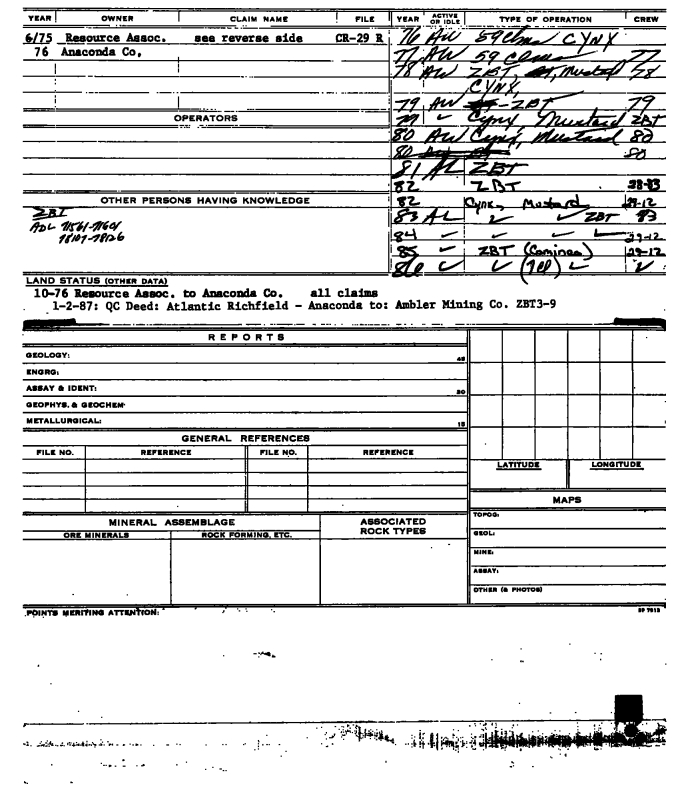 YEAR OWNER CLAIM NAME FILE
6/75 Resource Assoc. see reverse side CR-29 R
76 Anaconda Co.
OPERATORS
OTHER PERSONS HAVING KNOWLEDGE
ZBT
ADL 71561-71601
78107-78126
YEAR ACTIVE OR IDLE TYPE OF OPERATION CREW
76 AW 59 clms CYNX
77 AW 59 clms 77
78 AW ZBT, Mustard 78
CYNX,
79 AW ZBT 79
79 ✓ Cynx, Mustard ZBT
80 AW Cynx, Mustard 80
80 80
81 AL ZBT
82 ZBT 28-83
82 Cynx, Mustard 29-12
83 AL ✓ ✓ ZBT 83
84 ✓ ✓ ✓ ✓ 29-12
85 ✓ ZBT (Cominco) 29-12
86 ✓ ✓ ✓ ✓
LAND STATUS (OTHER DATA)
10-76 Resource Assoc. to Anaconda Co. all claims
1-2-87: QC Deed: Atlantic Richfield - Anaconda to: Ambler Mining Co. ZBT3-9
REPORTS
GEOLOGY: 45
ENGRG:
ASSAY & IDENT: 30
GEOPHYS. & GEOCHEM
METALLURGICAL: 15
GENERAL REFERENCES
FILE NO. REFERENCE FILE NO. REFERENCE
LATITUDE LONGITUDE
MAPS
TOPOG:
GEOL:
MINE:
ASSAY:
OTHER (& PHOTOS)
MINERAL ASSEMBLAGE
ORE MINERALS ROCK FORMING, ETC.
ASSOCIATED ROCK TYPES
POINTS MERITING ATTENTION: SP 7513